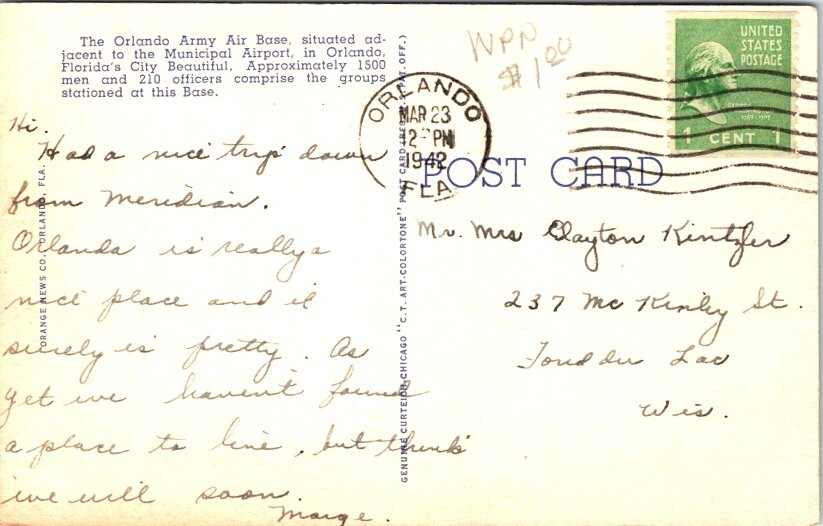 The Orlando Army Air Base, situated ad-
jacent to the Municipal Airport, in Orlando,
Florida's City Beautiful. Approximately 1500
men and 210 officers comprise the groups
stationed at this Base.
WPN
$1.00
ORLANDO
MAR 23
2 PM
1942
FLA
UNITED
STATES
POSTAGE
1 CENT 1
POST CARD
Hi.
Had a nice trip down
from Meridian.
Orlando is really a
nice place and it
surely is pretty. As
yet we haven't found
a place to live, but think
we will soon.
Marge.
Mr. Mrs Clayton Kintzler
237 Mc Kinley St.
Fond du Lac
Wis.
ORANGE NEWS CO., ORLANDO, FLA.
GENUINE CURTEICH-CHICAGO "C.T. ART-COLORTONE" POST CARD (REG. U.S. PAT. OFF.)